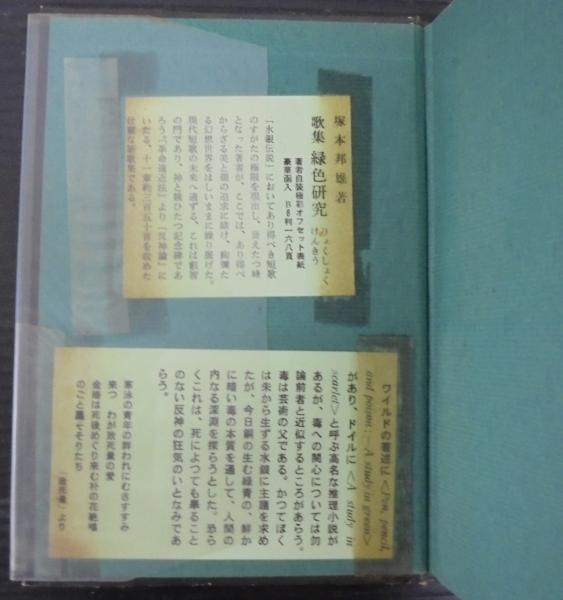 塚本邦雄著
歌集 緑色研究 りょくしょくけんきう
著者自装極彩オフセット表紙
豪華函入 B6判一六八頁
「水銀伝説」においてあり得べき短歌
のすがたの極限を現出し、聳えたつ峰
となった著者が、ここでは、あり得べ
からざる美と毒の追求に賭け、絢爛た
る幻想世界をほしいままに繰り展げた。
現代短歌の未来へ通ずる、これは叡智
の門であり、神と競ひたつ記念碑であ
ろう。「革命遠近法」より「反神論」に
いたる、十一章約三百五十首を収めた
壮麗な新歌集である。
ワイルドの著述に〈Pen, pencil,
and poison : A study in green〉
があり、ドイルに〈A study in
scarlet〉と呼ぶ高名な推理小説が
あるが、毒への関心については勿
論前者と近似するところがあらう。
毒は芸術の父である。かつてぼく
は朱から生ずる水銀に主題を求め
たが、今日銅の生む緑青の、鮮か
に暗い毒の本質を通して、人間の
内なる深淵を探らうとした。恐ら
くこれは、死によつても畢ること
のない反神の狂気のいとなみであ
らう。
寒泳の青年の群われにむきすすみ
来つ わが致死量の愛
金婚は死後めぐり来む朴の花絶唱
のごと蘂そそりたち
「致死量」より